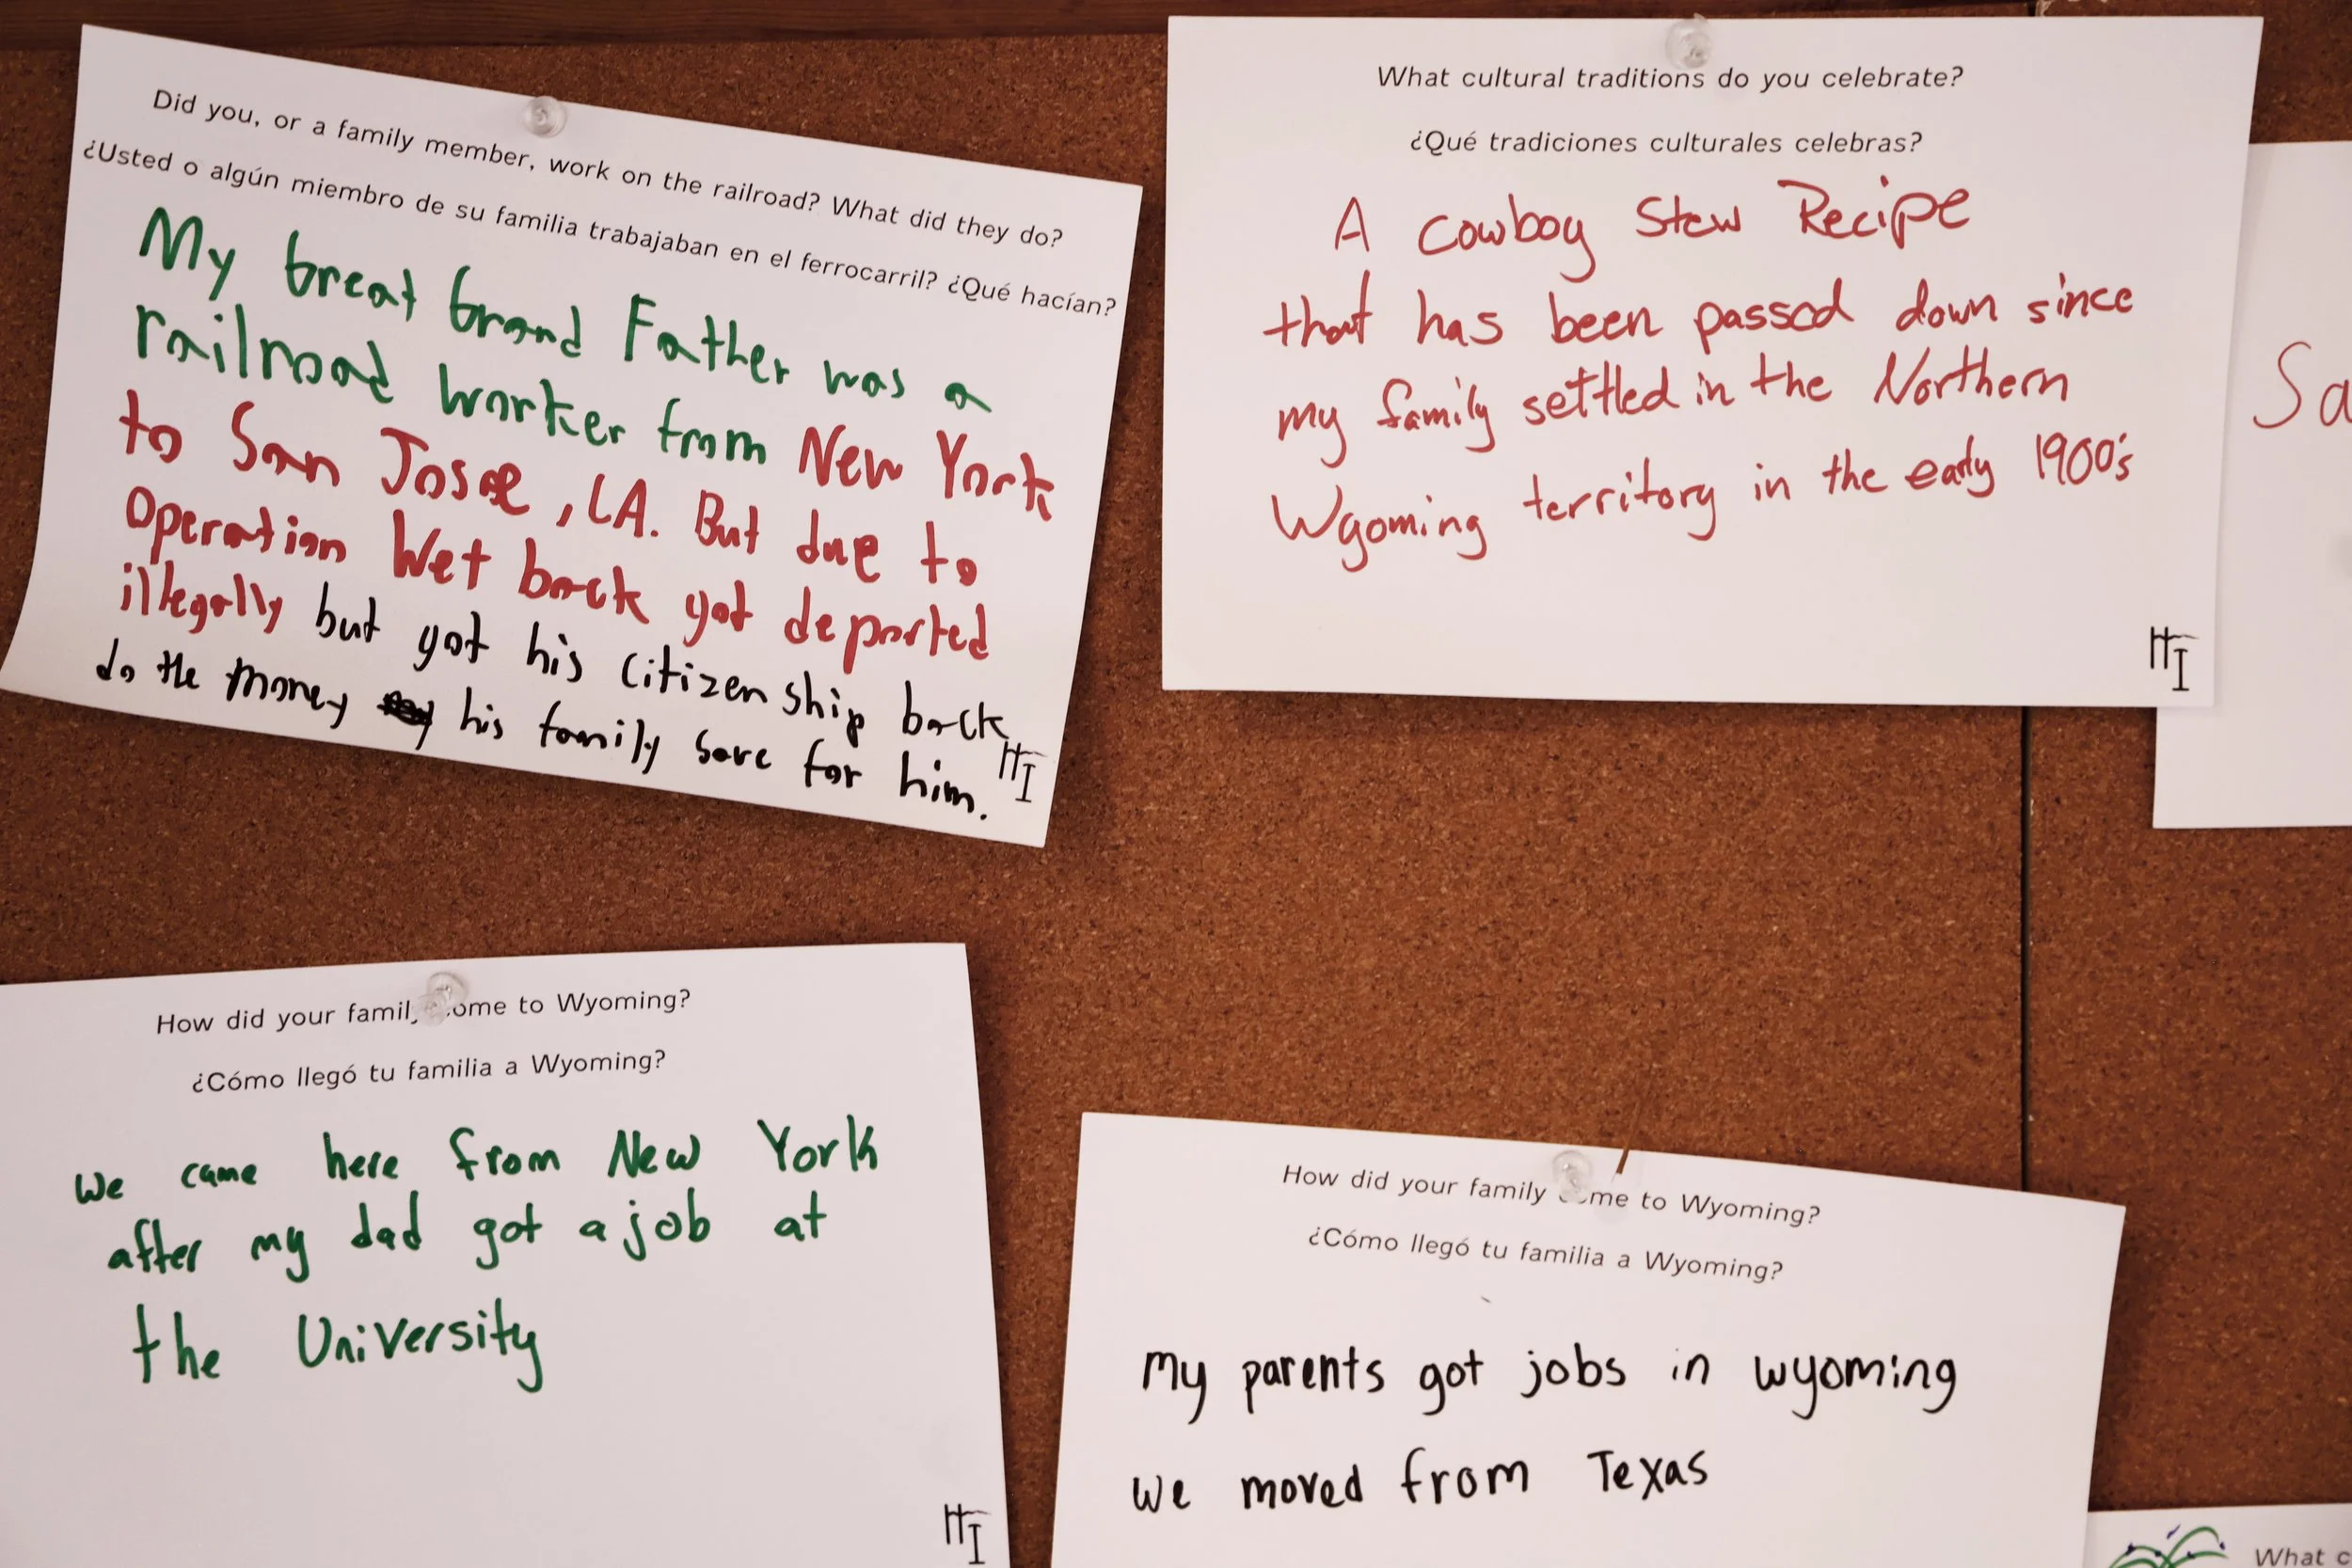 Did you, or a family member, work on the railroad? What did they do?
¿Usted o algún miembro de su familia trabajaban en el ferrocarril? ¿Qué hacían?
My Great Grand Father was a
railroad worker from New York
to San Jose, CA. But due to
Operation Wet back got deported
illegally but got his citizenship back
do the money his family save for him.
HI
What cultural traditions do you celebrate?
¿Qué tradiciones culturales celebras?
A Cowboy Stew Recipe
that has been passed down since
my family settled in the Northern
Wyoming territory in the early 1900's
HI
Sa
How did your family come to Wyoming?
¿Cómo llegó tu familia a Wyoming?
We came here from New York
after my dad got a job at
the University
HI
How did your family come to Wyoming?
¿Cómo llegó tu familia a Wyoming?
My parents got jobs in wyoming
we moved from Texas
What